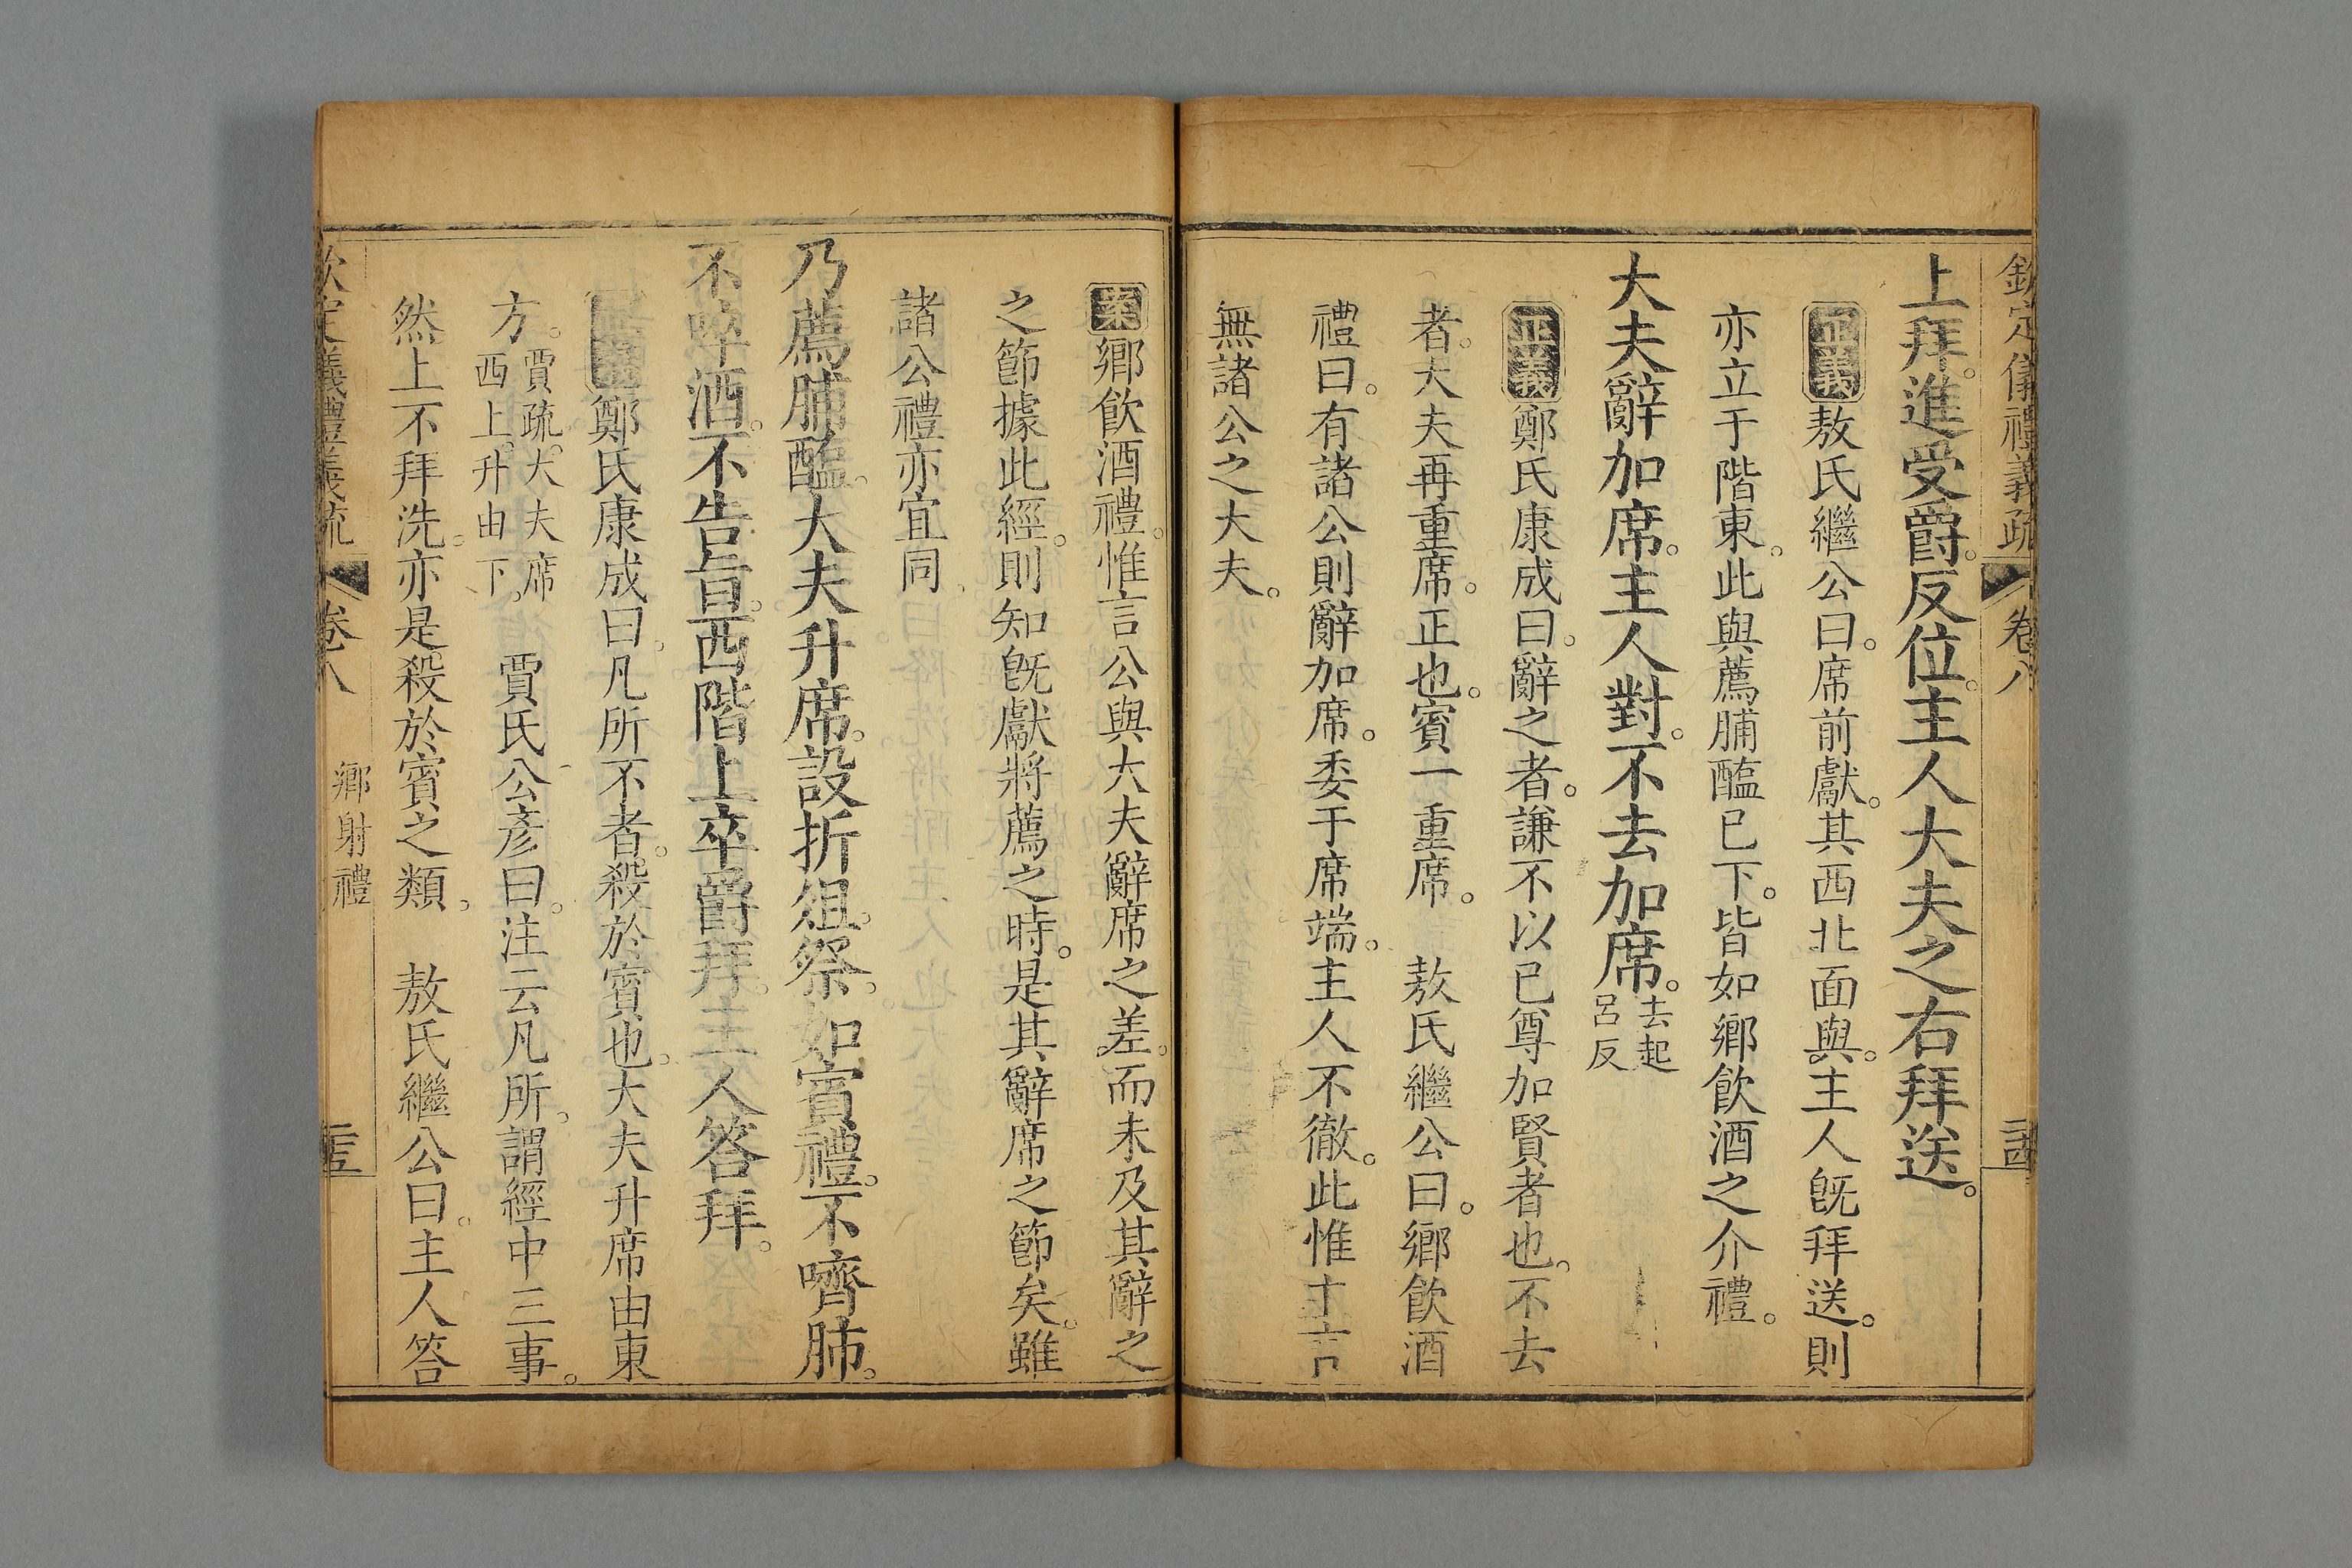 欽定儀禮義疏 卷八 二十四
上拜。進受爵。反位。主人大夫之右拜送。
正義敖氏繼公曰。席前獻。其西北面與。主人旣拜送。則
亦立于階東。此與薦脯醢已下。皆如鄉飲酒之介禮。
大夫辭加席。主人對。不去加席。去起呂反
正義鄭氏康成曰。辭之者。謙不以已尊加賢者也。不去
者。大夫再重席。正也。賓一重席。 敖氏繼公曰。鄉飲酒
禮曰。有諸公則辭加席。委于席端。主人不徹。此惟言
無諸公之大夫。
案鄉飲酒禮。惟言公與大夫辭席之差。而未及其辭之
之節據此經。則知旣獻將薦之時。是其辭席之節矣。雖
諸公禮亦宜同
乃薦脯醢。大夫升席。設折俎。祭如賓禮。不嚌肺。
不啐酒。不告旨。西階上卒爵拜。主人答拜。
鄭氏康成曰。凡所不者。殺於賓也。大夫升席由東
方。賈疏。大夫席西上。升由下。 賈氏公彥曰。注云凡所。謂經中三事。
然上不拜洗。亦是殺於賓之類。 敖氏繼公曰。主人答
欽定儀禮義疏 卷八 鄉射禮 二十五